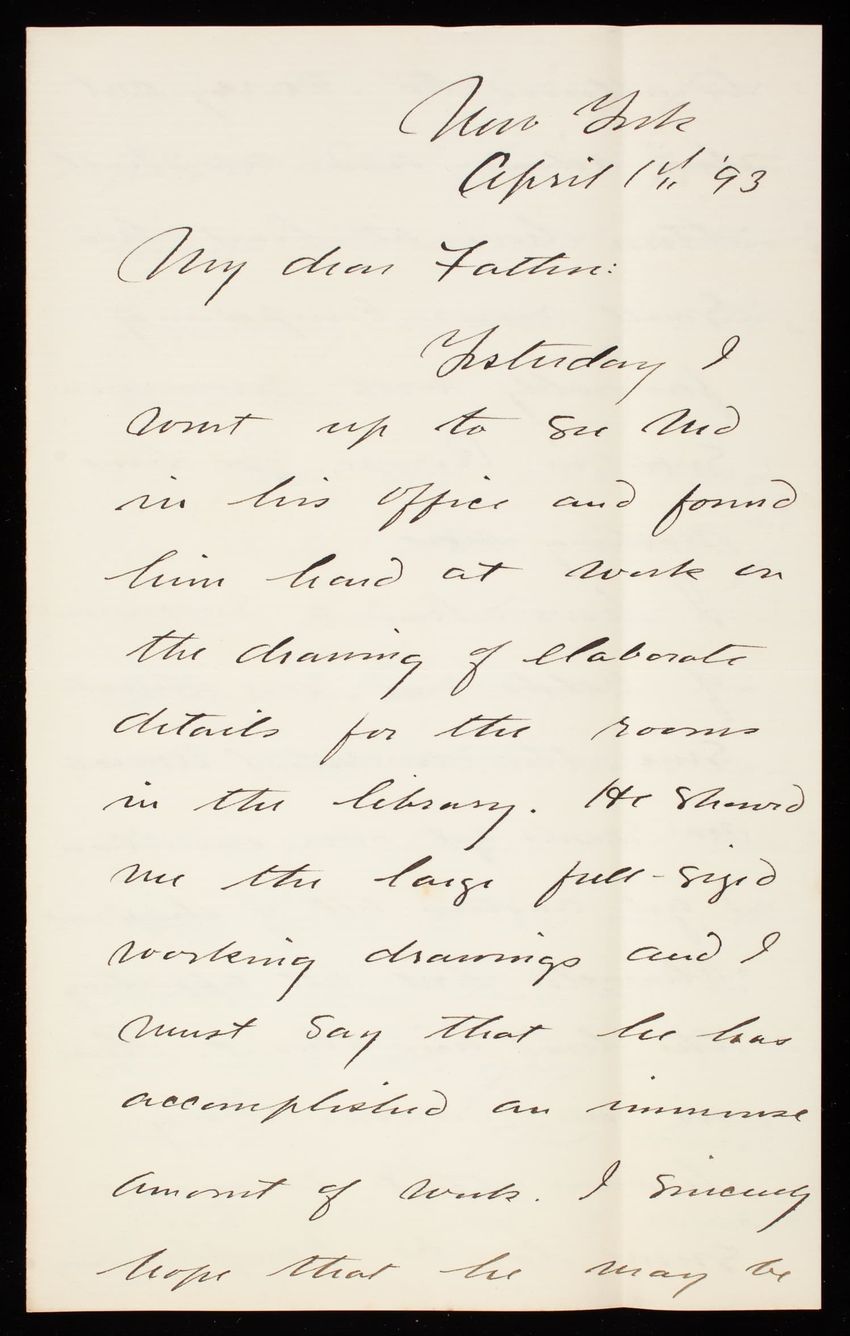 New York
April 1st '93
My dear Father:
Yesterday I
went up to see Ned
in his office and found
him hard at work on
the drawing of elaborate
details for the rooms
in the library. He showed
me the large full-sized
working drawings and I
must say that he has
accomplished an immense
amount of work. I sincerely
hope that he may be